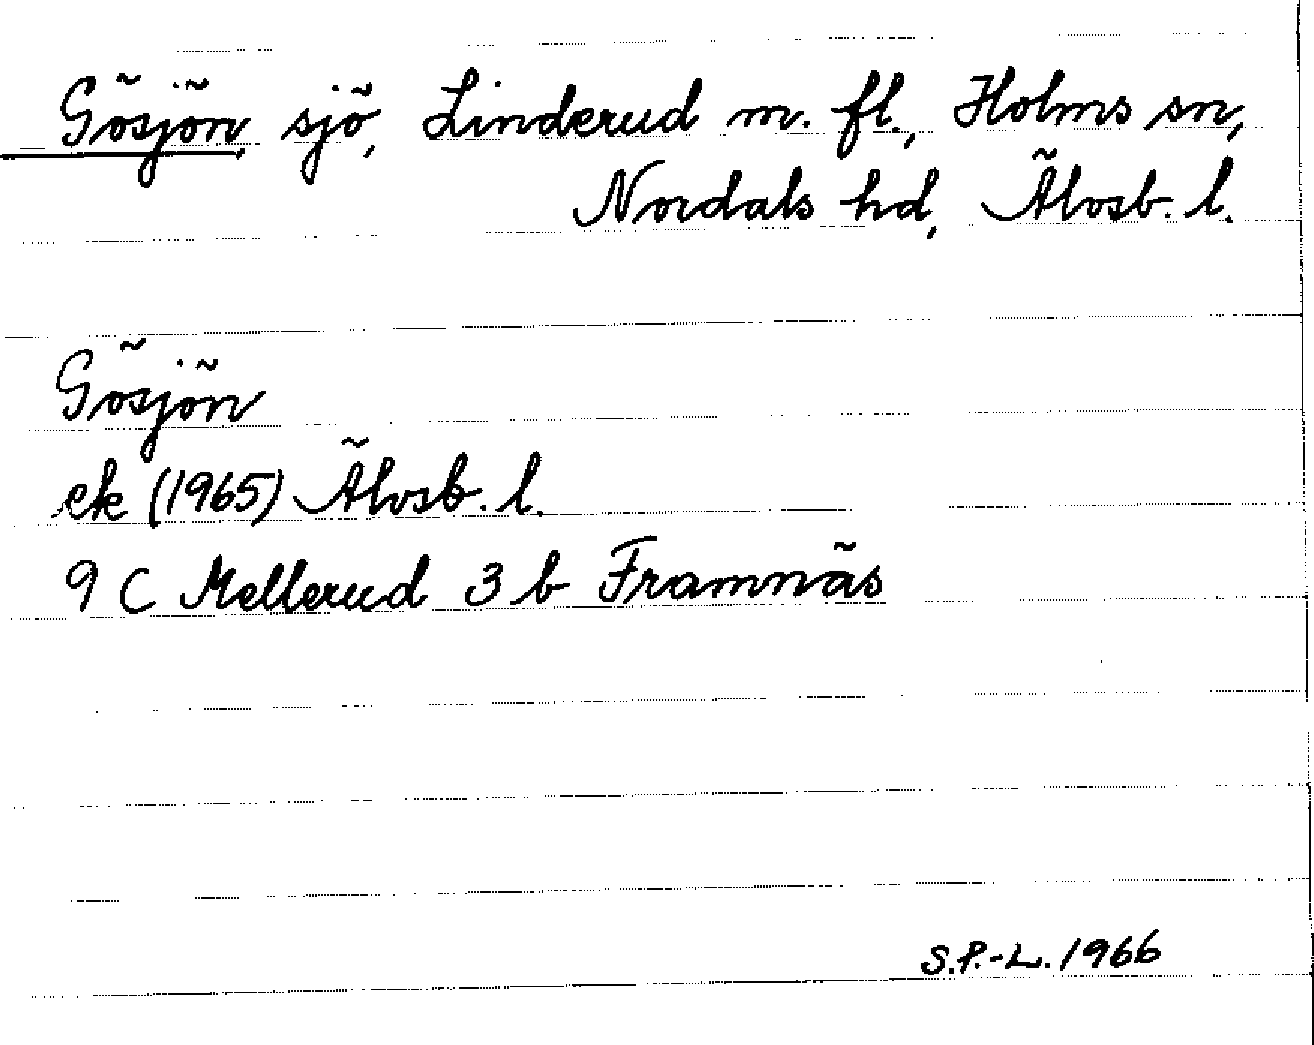 Gösjön, sjö, Linderud m. fl., Holms sn,
Nordals hd, Älvsb. l.
Gösjön
ek (1965) Älvsb. l.
9 C Mellerud 3 b Framnäs
S.P.-L. 1966